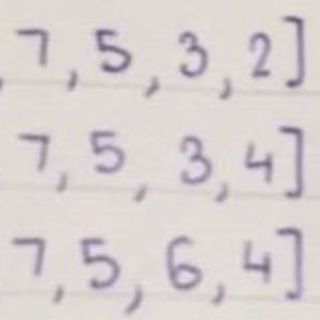 , 7, 5, 3, 2]
7, 5, 3, 4]
7, 5, 6, 4]